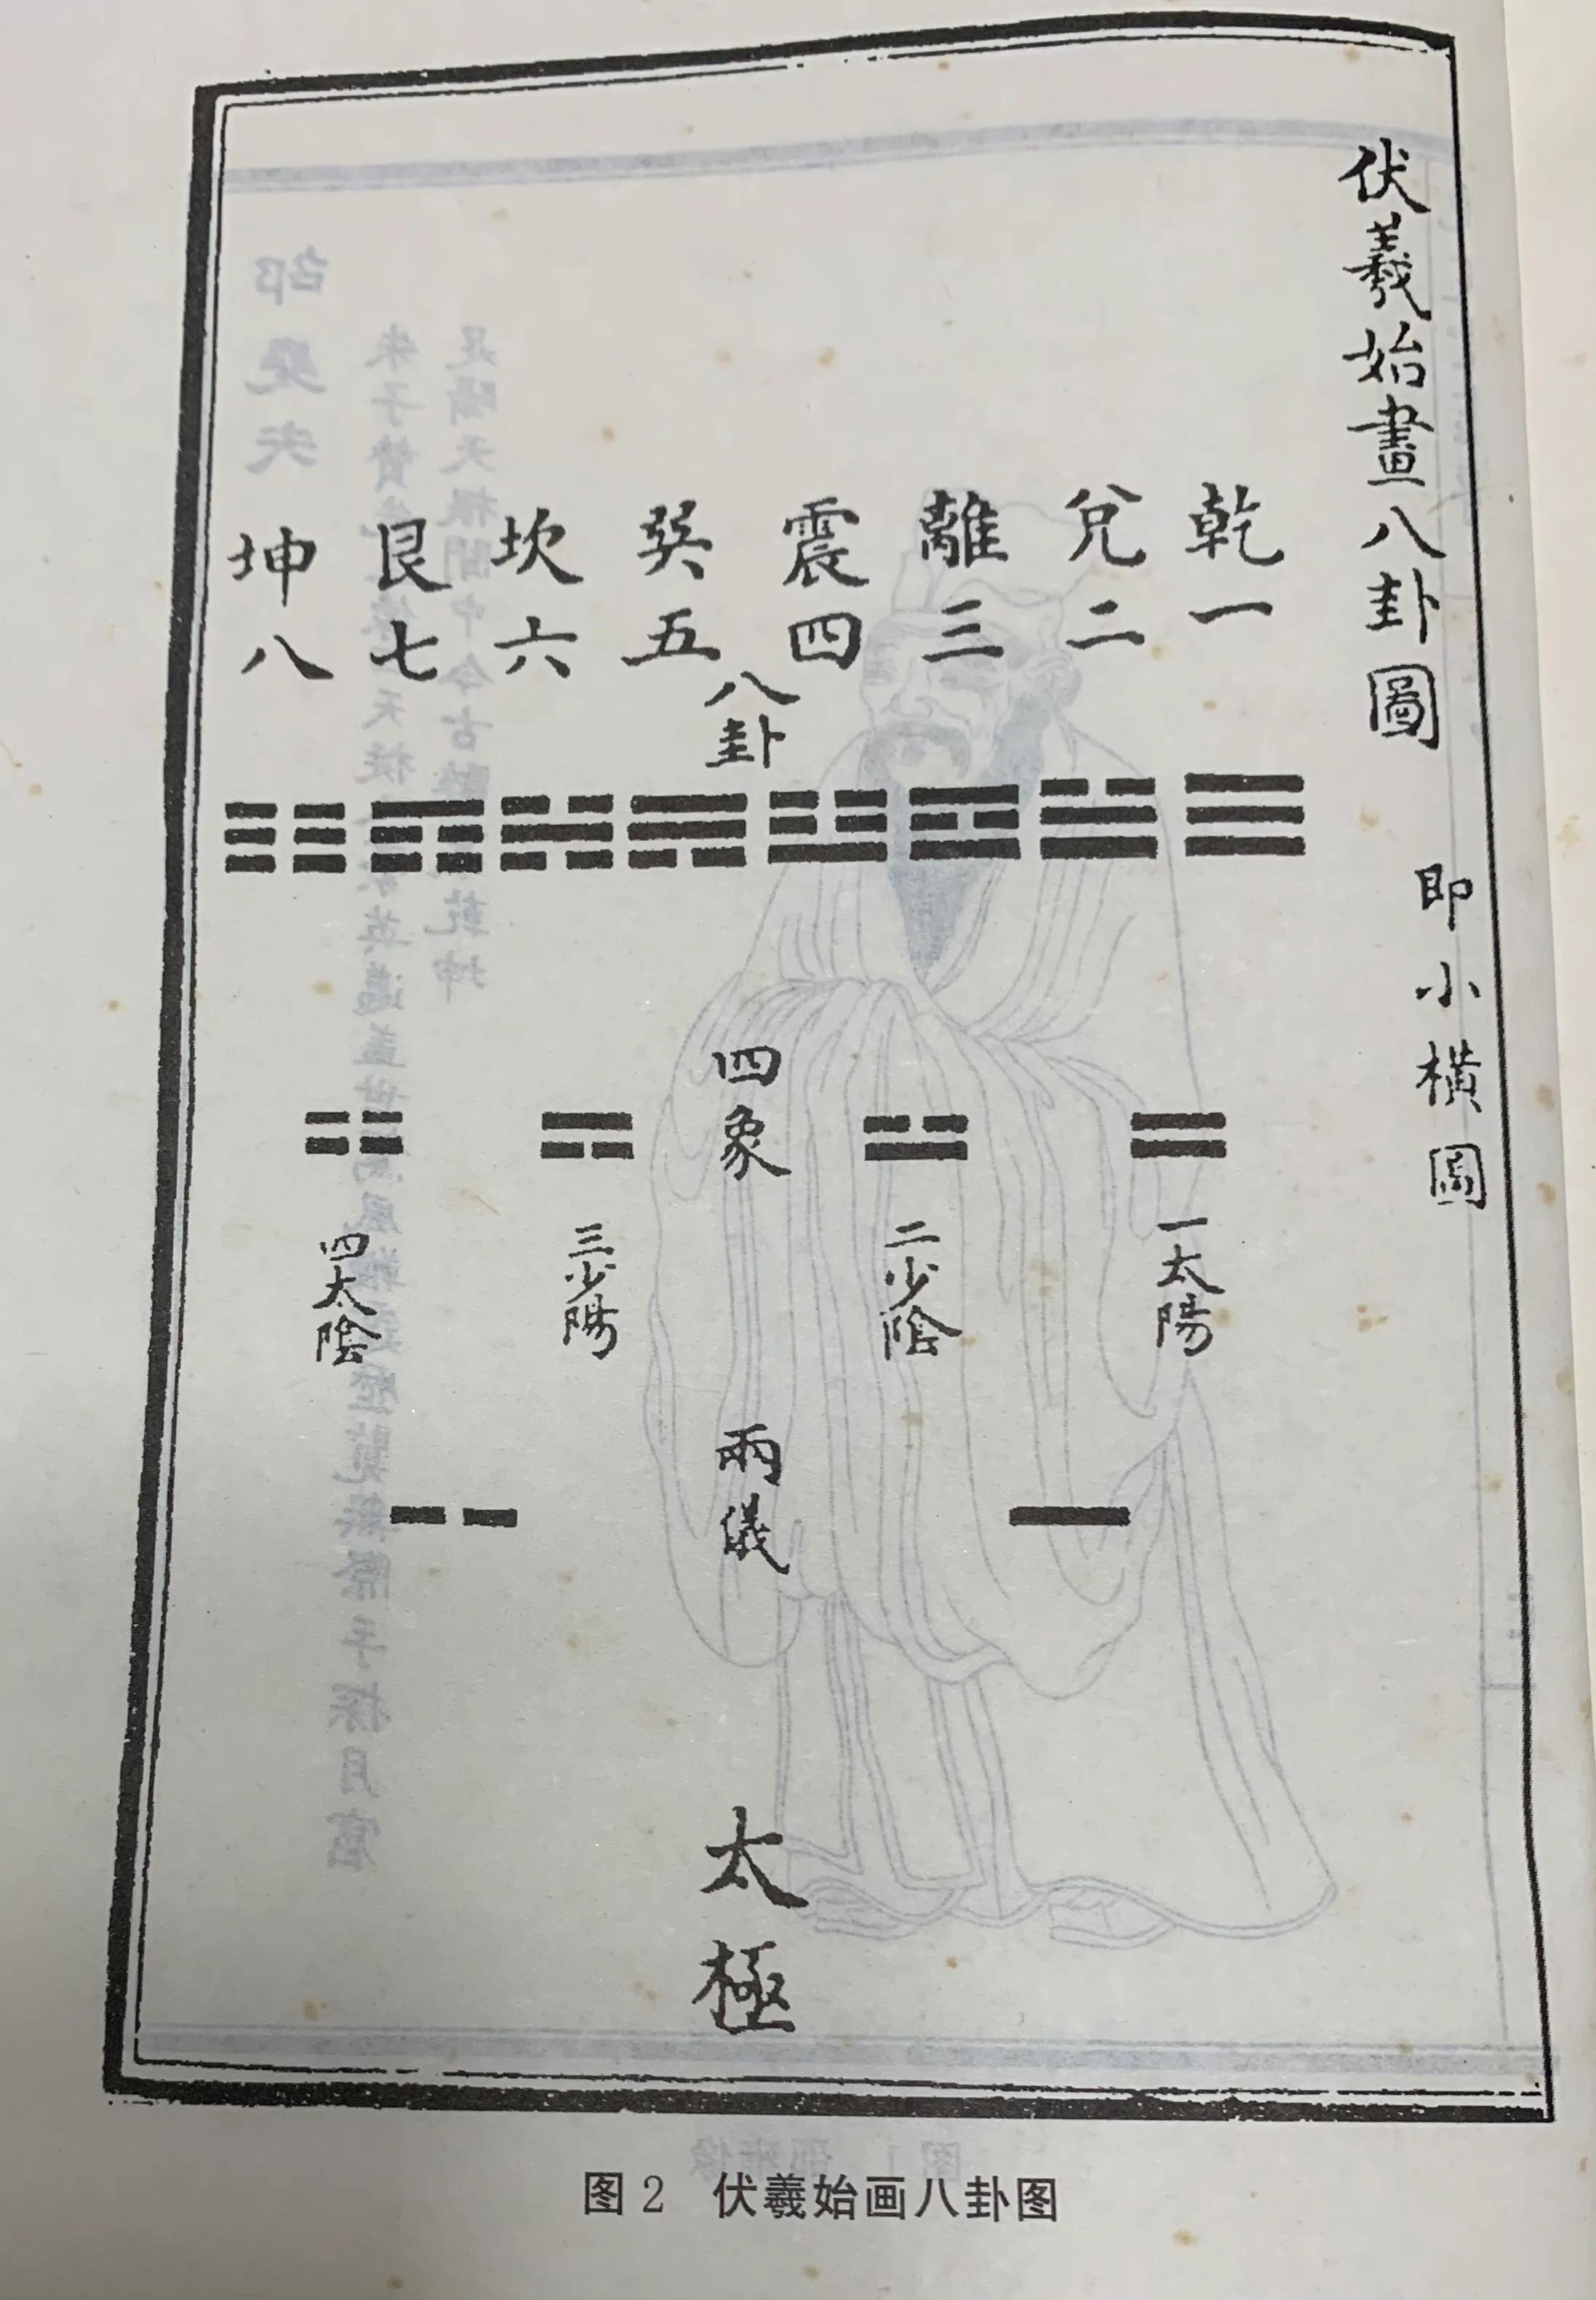 伏羲始畫八卦圖　即小橫圖
乾一
兌二
離三
震四
八卦
巽五
坎六
艮七
坤八
四象
一太陽
二少陰
三少陽
四太陰
兩儀
太極
图2　伏羲始画八卦图